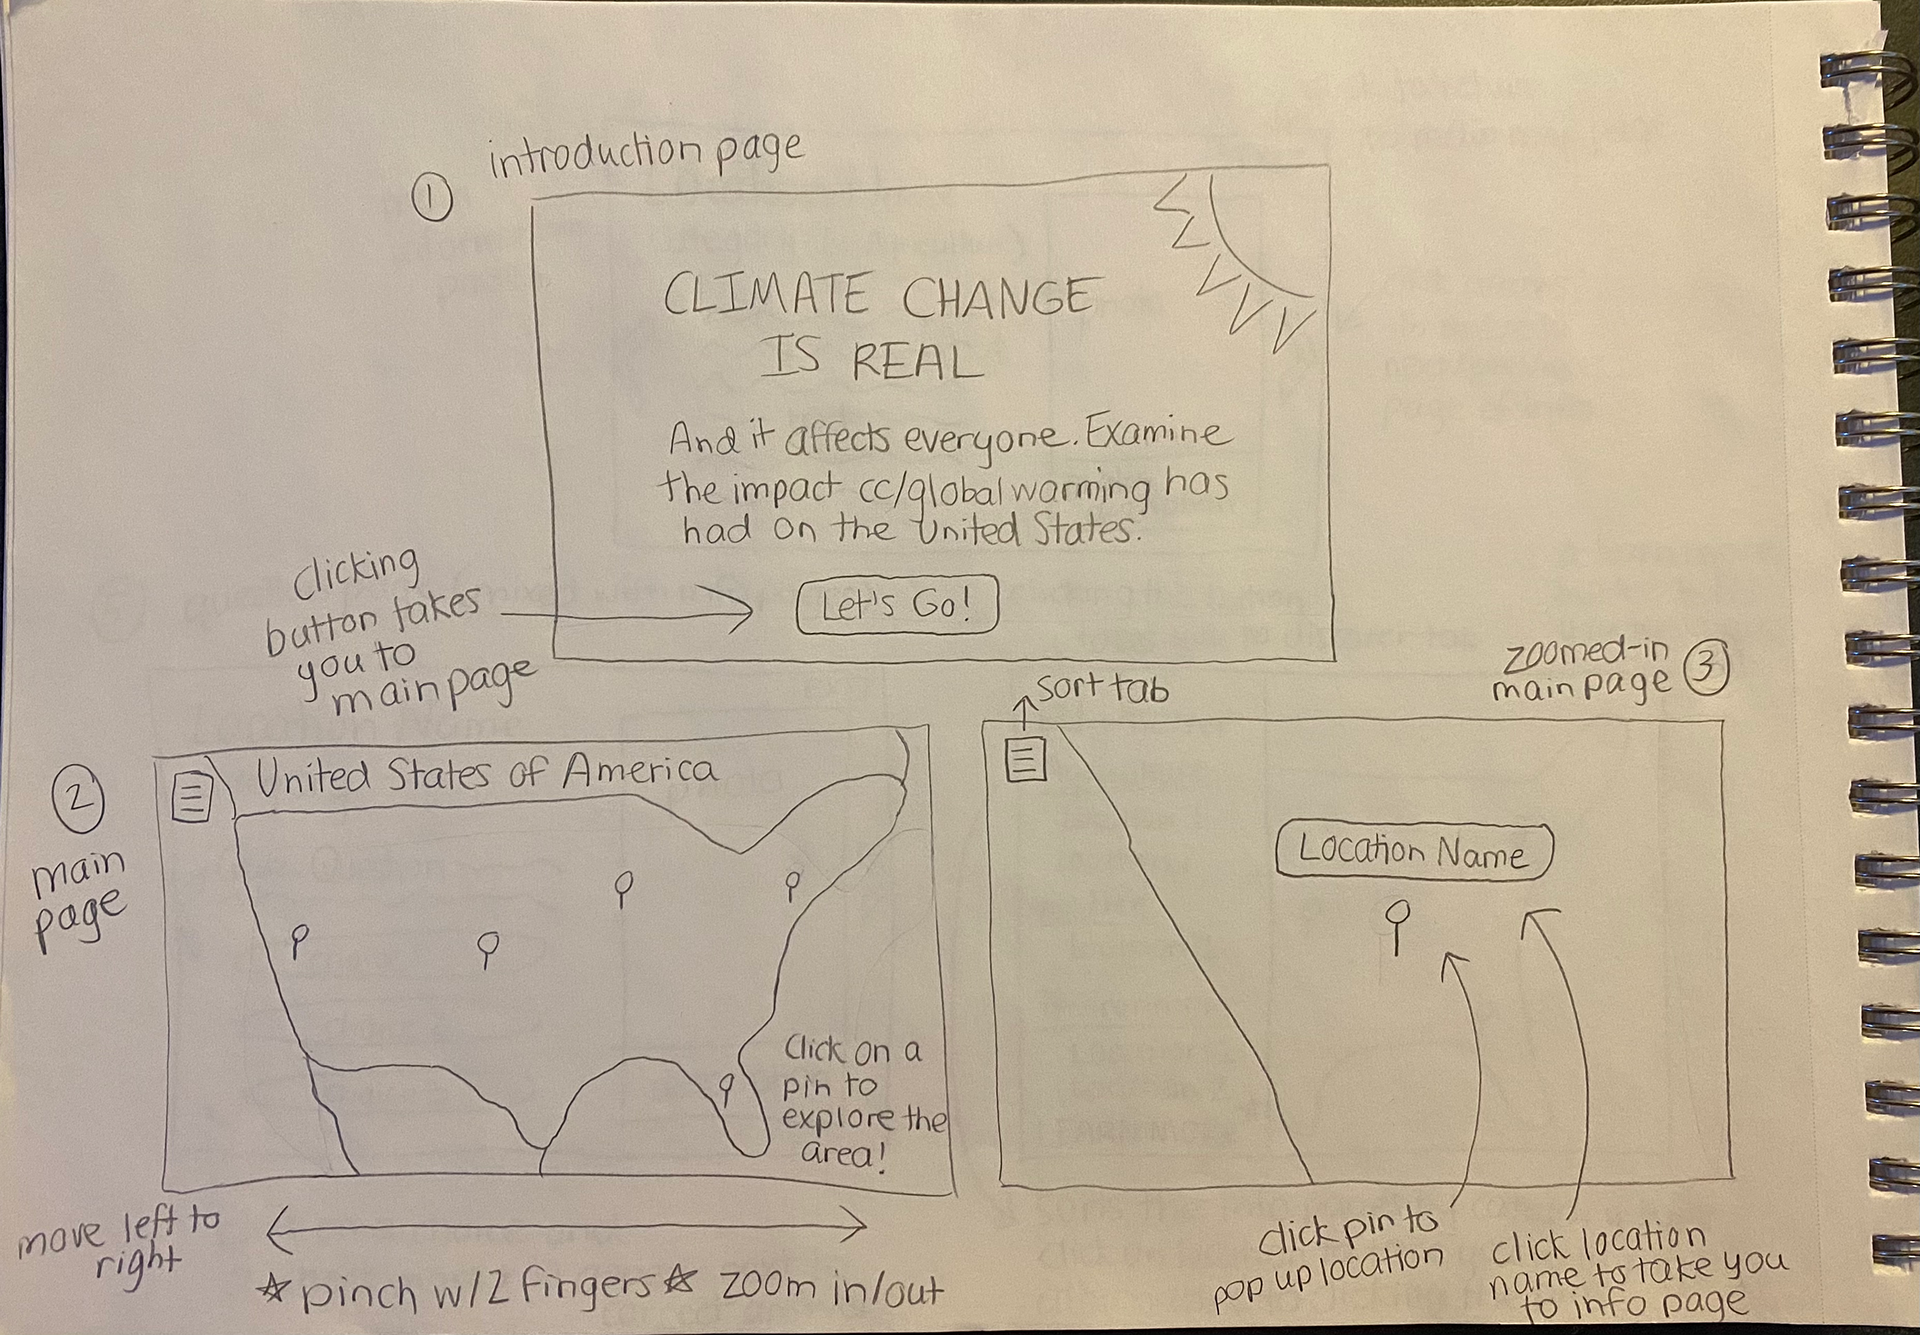 introduction page
1
CLIMATE CHANGE
IS REAL
And it affects everyone. Examine
the impact cc/global warming has
had on the United States.
Let's Go!
clicking
button takes
you to
main page
2
main
page
United States of America
Click on a
pin to
explore the
area!
move left to
right
☆pinch w/2 fingers☆ zoom in/out
zoomed-in
main page
3
sort tab
Location Name
click pin to
pop up location
click location
name to take you
to info page